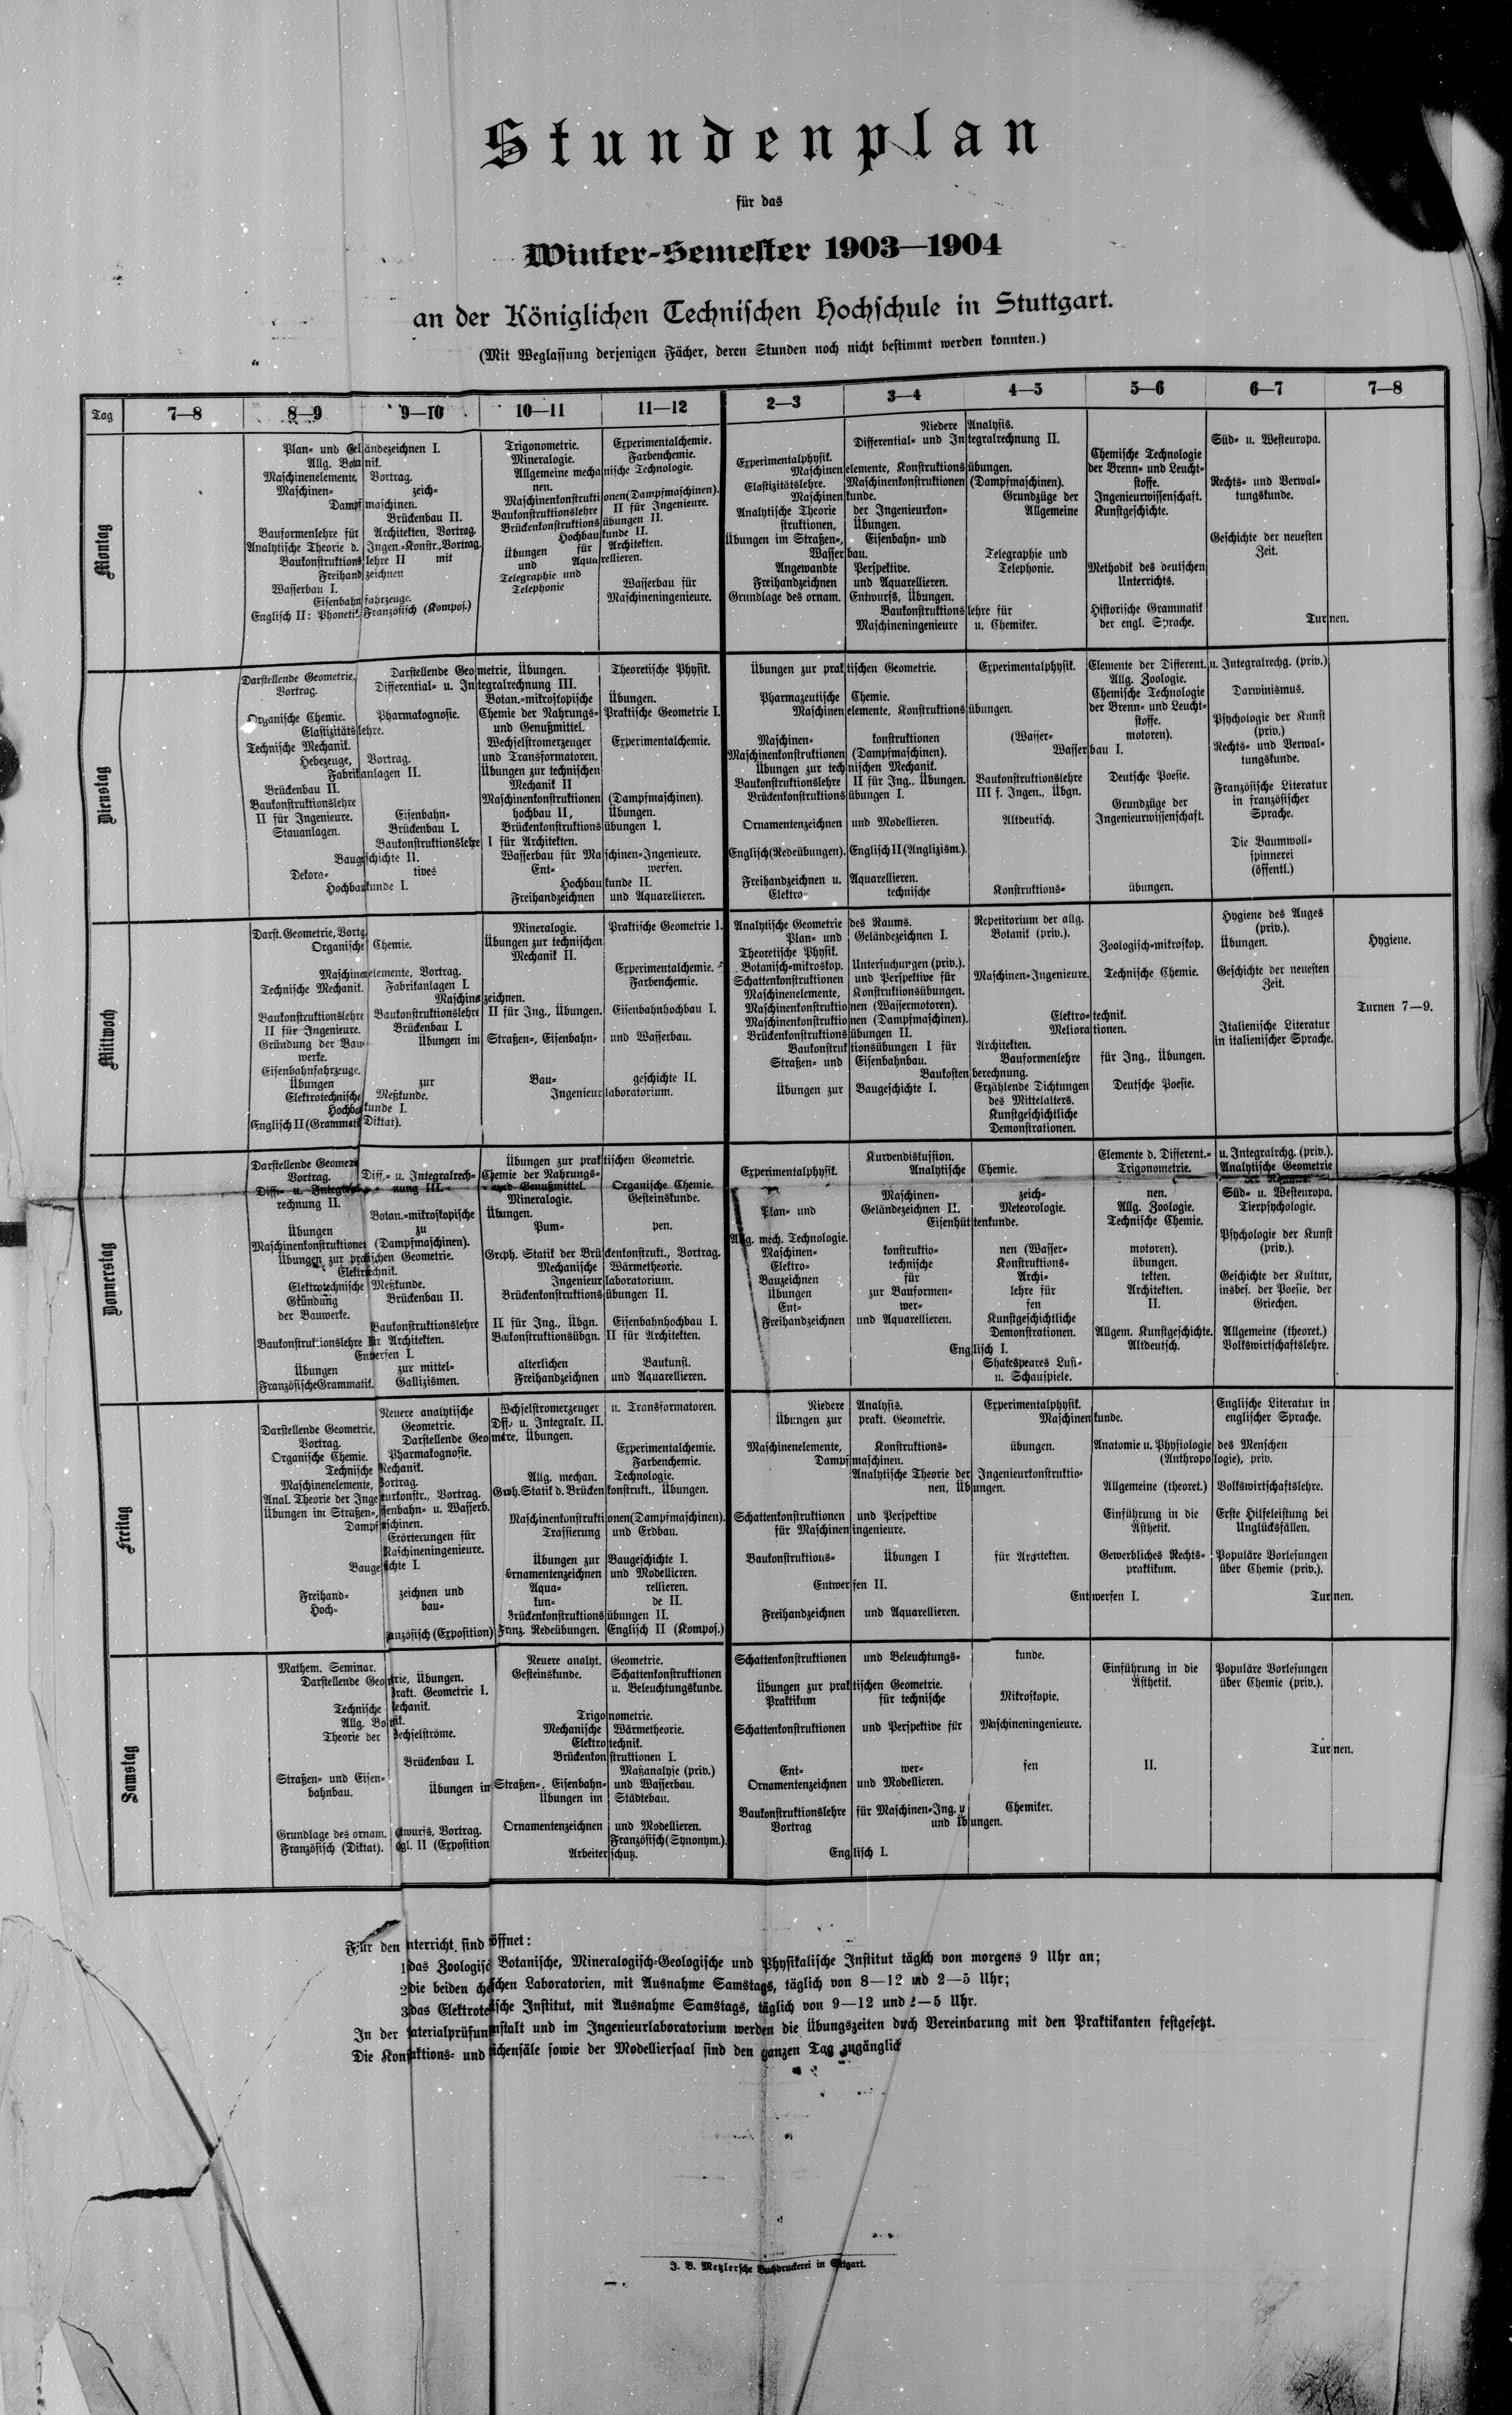 Stundenplan
für das
Winter-Semester 1903—1904
an der Königlichen Technischen Hochschule in Stuttgart.
(Mit Weglassung derjenigen Fächer, deren Stunden noch nicht bestimmt werden konnten.)
Tag 7—8 8—9 9—10 10—11 11—12 2—3 3—4 4—5 5—6 6—7 7—8
Montag
Plan- und Geländezeichnen I.
Allg. Botanik.
Maschinenelemente, Vortrag.
Maschinen- zeich-
Dampfmaschinen.
Brückenbau II.
Bauformenlehre für Architekten, Vortrag.
Analytische Theorie d. Ingen.-Konstr., Vortrag.
Baukonstruktionslehre II mit
Freihandzeichnen
Wasserbau I.
Eisenbahnfahrzeuge.
Englisch II: Phonetik. Französisch (Kompos.)
Trigonometrie. Experimentalchemie.
Mineralogie. Farbenchemie.
Allgemeine mechanische Technologie.
nen.
Maschinenkonstruktionen (Dampfmaschinen).
Baukonstruktionslehre II für Ingenieure.
Brückenkonstruktionsübungen II.
Hochbaukunde II.
Übungen für Architekten.
und Aquarellieren.
Telegraphie und
Telephonie
Wasserbau für
Maschineningenieure.
Niedere Analysis.
Differential- und Integralrechnung II.
Experimentalphysik.
Maschinenelemente, Konstruktionsübungen.
Elastizitätslehre. Maschinenkonstruktionen (Dampfmaschinen).
Maschinenkunde. Grundzüge der Ingenieurwissenschaft.
Analytische Theorie der Ingenieurkon- Allgemeine Kunstgeschichte.
struktionen, Übungen.
Übungen im Straßen-, Eisenbahn- und
Wasserbau. Telegraphie und
Angewandte Perspektive. Telephonie.
Freihandzeichnen und Aquarellieren.
Grundlage des ornam. Entwurfs, Übungen.
Baukonstruktionslehre für
Maschineningenieure u. Chemiker.
Chemische Technologie
der Brenn- und Leucht-
stoffe.
Methodik des deutschen
Unterrichts.
Historische Grammatik
der engl. Sprache.
Süd- u. Westeuropa.
Rechts- und Verwal-
tungskunde.
Geschichte der neuesten
Zeit.
Turnen.
Dienstag
Darstellende Geometrie,
Vortrag.
Organische Chemie. Pharmakognosie.
Elastizitätslehre.
Technische Mechanik.
Hebezeuge, Vortrag.
Fabrikanlagen II.
Brückenbau II.
Baukonstruktionslehre
II für Ingenieure. Eisenbahn-
Stauanlagen. Brückenbau I.
Baukonstruktionslehre I für Architekten.
Baugeschichte II.
Dekora- tives
Hochbaukunde I.
Darstellende Geometrie, Übungen. Theoretische Physik.
Differential- u. Integralrechnung III.
Botan.-mikroskopische Übungen.
Chemie der Nahrungs- Praktische Geometrie I.
und Genußmittel.
Wechselstromerzeuger Experimentalchemie.
und Transformatoren.
Übungen zur technischen
Mechanik II
Maschinenkonstruktionen (Dampfmaschinen).
hochbau II, Übungen.
Brückenkonstruktionsübungen I.
Wasserbau für Maschinen-Ingenieure.
Ent- werfen.
Hochbaukunde II.
Freihandzeichnen und Aquarellieren.
Übungen zur praktischen Geometrie. Experimentalphysik.
Pharmazeutische Chemie.
Maschinenelemente, Konstruktionsübungen.
Maschinen- konstruktionen (Wasser- motoren).
Maschinenkonstruktionen (Dampfmaschinen). Wasserbau I.
Übungen zur technischen Mechanik.
Baukonstruktionslehre II für Ing., Übungen. Baukonstruktionslehre
Brückenkonstruktionsübungen I. III f. Ingen., Übgn.
Ornamentenzeichnen und Modellieren. Altdeutsch.
Englisch (Redeübungen). Englisch II (Anglizism.).
Freihandzeichnen u. Aquarellieren.
Elektro- technische Konstruktions- übungen.
Elemente der Different. u. Integralrechg. (priv.)
Allg. Zoologie.
Chemische Technologie Darwinismus.
der Brenn- und Leucht-
stoffe. Psychologie der Kunst
(priv.)
Rechts- und Verwal-
tungskunde.
Deutsche Poesie.
Grundzüge der
Ingenieurwissenschaft.
Französische Literatur
in französischer
Sprache.
Die Baumwoll-
spinnerei
(öffentl.)
Mittwoch
Darst. Geometrie, Vortg.
Organische Chemie.
Maschinenelemente, Vortrag.
Technische Mechanik. Fabrikanlagen I.
Maschinenzeichnen.
Baukonstruktionslehre Baukonstruktionslehre II für Ing., Übungen. Eisenbahnhochbau I.
II für Ingenieure. Brückenbau I.
Gründung der Bau- Übungen im Straßen-, Eisenbahn- und Wasserbau.
werke.
Eisenbahnfahrzeuge.
Übungen zur Bau- geschichte II.
Elektrotechnische Meßkunde. Ingenieurlaboratorium.
Hochbaukunde I.
Englisch II (Grammatik Diktat).
Mineralogie. Praktische Geometrie I.
Übungen zur technischen
Mechanik II.
Experimentalchemie.
Farbenchemie.
Analytische Geometrie des Raums. Repetitorium der allg.
Plan- und Geländezeichnen I. Botanik (priv.).
Theoretische Physik. Zoologisch-mikroskop. Übungen.
Botanisch-mikroskop. Untersuchungen (priv.).
Schattenkonstruktionen und Perspektive für Maschinen-Ingenieure. Technische Chemie.
Maschinenelemente, Konstruktionsübungen.
Maschinenkonstruktionen (Wassermotoren).
Maschinenkonstruktionen (Dampfmaschinen). Elektrotechnik.
Brückenkonstruktionsübungen II. Meliorationen.
Baukonstruktionsübungen I für Architekten.
Straßen- und Eisenbahnbau. Bauformenlehre für Ing., Übungen.
Baukostenberechnung.
Übungen zur Baugeschichte I. Erzählende Dichtungen Deutsche Poesie.
des Mittelalters.
Kunstgeschichtliche
Demonstrationen.
Hygiene des Auges
(priv.).
Geschichte der neuesten
Zeit.
Italienische Literatur
in italienischer Sprache.
Hygiene.
Turnen 7—9.
Donnerstag
Darstellende Geometrie
Vortrag. Diff.- u. Integralrech-
Diff.- u. Integral- nung III.
rechnung II.
Botan.-mikroskopische Übungen.
Übungen zu Pum- pen.
Maschinenkonstruktionen (Dampfmaschinen).
Übungen zur praktischen Geometrie.
Elektrotechnik.
Elektrotechnische Meßkunde.
Gründung Brückenbau II.
der Bauwerke.
Baukonstruktionslehre II für Ing., Übgn. Eisenbahnhochbau I.
Baukonstruktionslehre für Architekten. Baukonstruktionsübgn. II für Architekten.
Entwerfen I.
Übungen zur mittel- alterlichen Baukunst.
Französische Grammatik. Gallizismen. Freihandzeichnen und Aquarellieren.
Übungen zur praktischen Geometrie.
Chemie der Nahrungs-
und Genußmittel. Organische Chemie.
Mineralogie. Gesteinskunde.
Graph. Statik der Brückenkonstrukt., Vortrag.
Mechanische Wärmetheorie.
Ingenieurlaboratorium.
Brückenkonstruktionsübungen II.
Kurvendiskussion.
Experimentalphysik. Analytische Chemie.
Maschinen- zeich- nen.
Plan- und Geländezeichnen II. Meteorologie. Allg. Zoologie.
Eisenhüttenkunde. Technische Chemie.
Allg. mech. Technologie.
Maschinen- konstruktio- nen (Wasser- motoren).
Elektro- technische Konstruktions- übungen.
Bauzeichnen für Archi- tekten.
Übungen zur Bauformen- lehre für Architekten.
Ent- wer- fen II.
Freihandzeichnen und Aquarellieren. Kunstgeschichtliche
Demonstrationen. Allgem. Kunstgeschichte.
Englisch I. Altdeutsch.
Shakespeares Lust-
u. Schauspiele.
Elemente d. Different.- u. Integralrchg. (priv.).
Trigonometrie. Analytische Geometrie
Süd- u. Westeuropa.
Tierpsychologie.
Psychologie der Kunst
(priv.).
Geschichte der Kultur,
insbes. der Poesie, der
Griechen.
Allgemeine (theoret.)
Volkswirtschaftslehre.
Freitag
Neuere analytische
Darstellende Geometrie, Geometrie.
Vortrag. Darstellende Geometrie, Übungen.
Organische Chemie. Pharmakognosie.
Technische Mechanik.
Maschinenelemente, Vortrag.
Anal. Theorie der Ingenieurkonstr., Vortrag.
Übungen im Straßen-, Eisenbahn- u. Wasserb.
Dampfmaschinen.
Erörterungen für
Maschineningenieure.
Baugeschichte I.
Freihand- zeichnen und Aqua- rellieren.
Hoch- bau- kun- de II.
Französisch (Exposition) Franz. Redeübungen. Englisch II (Kompos.)
Wechselstromerzeuger u. Transformatoren.
Diff.- u. Integralr. II.
Experimentalchemie.
Farbenchemie.
Allg. mechan. Technologie.
Graph. Statik d. Brückenkonstrukt., Übungen.
Maschinenkonstruktionen (Dampfmaschinen).
Trassierung und Erdbau.
Übungen zur Baugeschichte I.
Ornamentenzeichnen und Modellieren.
Brückenkonstruktionsübungen II.
Niedere Analysis. Experimentalphysik.
Übungen zur prakt. Geometrie. Maschinenkunde.
Maschinenelemente, Konstruktions- übungen.
Dampfmaschinen.
Analytische Theorie der Ingenieurkonstruktio-
nen, Übungen.
Schattenkonstruktionen und Perspektive
für Maschineningenieure.
Baukonstruktions- Übungen I für Architekten.
Entwerfen II. Entwerfen I.
Freihandzeichnen und Aquarellieren.
Anatomie u. Physiologie des Menschen
(Anthropologie), priv.
Allgemeine (theoret.) Volkswirtschaftslehre.
Einführung in die Erste Hilfeleistung bei
Ästhetik. Unglücksfällen.
Gewerbliches Rechts- Populäre Vorlesungen
praktikum. über Chemie (priv.).
Englische Literatur in
englischer Sprache.
Turnen.
Samstag
Mathem. Seminar.
Darstellende Geometrie, Übungen.
Prakt. Geometrie I.
Technische Mechanik.
Allg. Botanik.
Theorie der Wechselströme.
Brückenbau I.
Straßen- und Eisen-
bahnbau. Übungen im Straßen-, Eisenbahn- und Wasserbau.
Grundlage des ornam. Entwurfs, Vortrag.
Französisch (Diktat). Engl. II (Exposition
Neuere analyt. Geometrie.
Gesteinskunde. Schattenkonstruktionen
u. Beleuchtungskunde.
Trigonometrie.
Mechanische Wärmetheorie.
Elektrotechnik.
Brückenkonstruktionen I.
Maßanalyse (priv.)
Übungen im Städtebau.
Ornamentenzeichnen und Modellieren.
Französisch (Synonym.).
Arbeiterschutz.
Schattenkonstruktionen und Beleuchtungs- kunde.
Übungen zur praktischen Geometrie.
Praktikum für technische Mikroskopie.
Schattenkonstruktionen und Perspektive für Maschineningenieure.
Ent- wer- fen II.
Ornamentenzeichnen und Modellieren.
Baukonstruktionslehre für Maschinen-Ing. u. Chemiker.
Vortrag und Übungen.
Englisch I.
Einführung in die Populäre Vorlesungen
Ästhetik. über Chemie (priv.).
Turnen.
Für den Unterricht sind geöffnet:
1. das Zoologische Botanische, Mineralogisch-Geologische und Physikalische Institut täglich von morgens 9 Uhr an;
2. die beiden chemischen Laboratorien, mit Ausnahme Samstags, täglich von 8—12 und 2—5 Uhr;
3. das Elektrotechnische Institut, mit Ausnahme Samstags, täglich von 9—12 und 2—5 Uhr.
In der Materialprüfungsanstalt und im Ingenieurlaboratorium werden die Übungszeiten durch Vereinbarung mit den Praktikanten festgesetzt.
Die Konstruktions- und Zeichensäle sowie der Modelliersaal sind den ganzen Tag zugänglich
J. B. Metzlersche Buchdruckerei in Stuttgart.